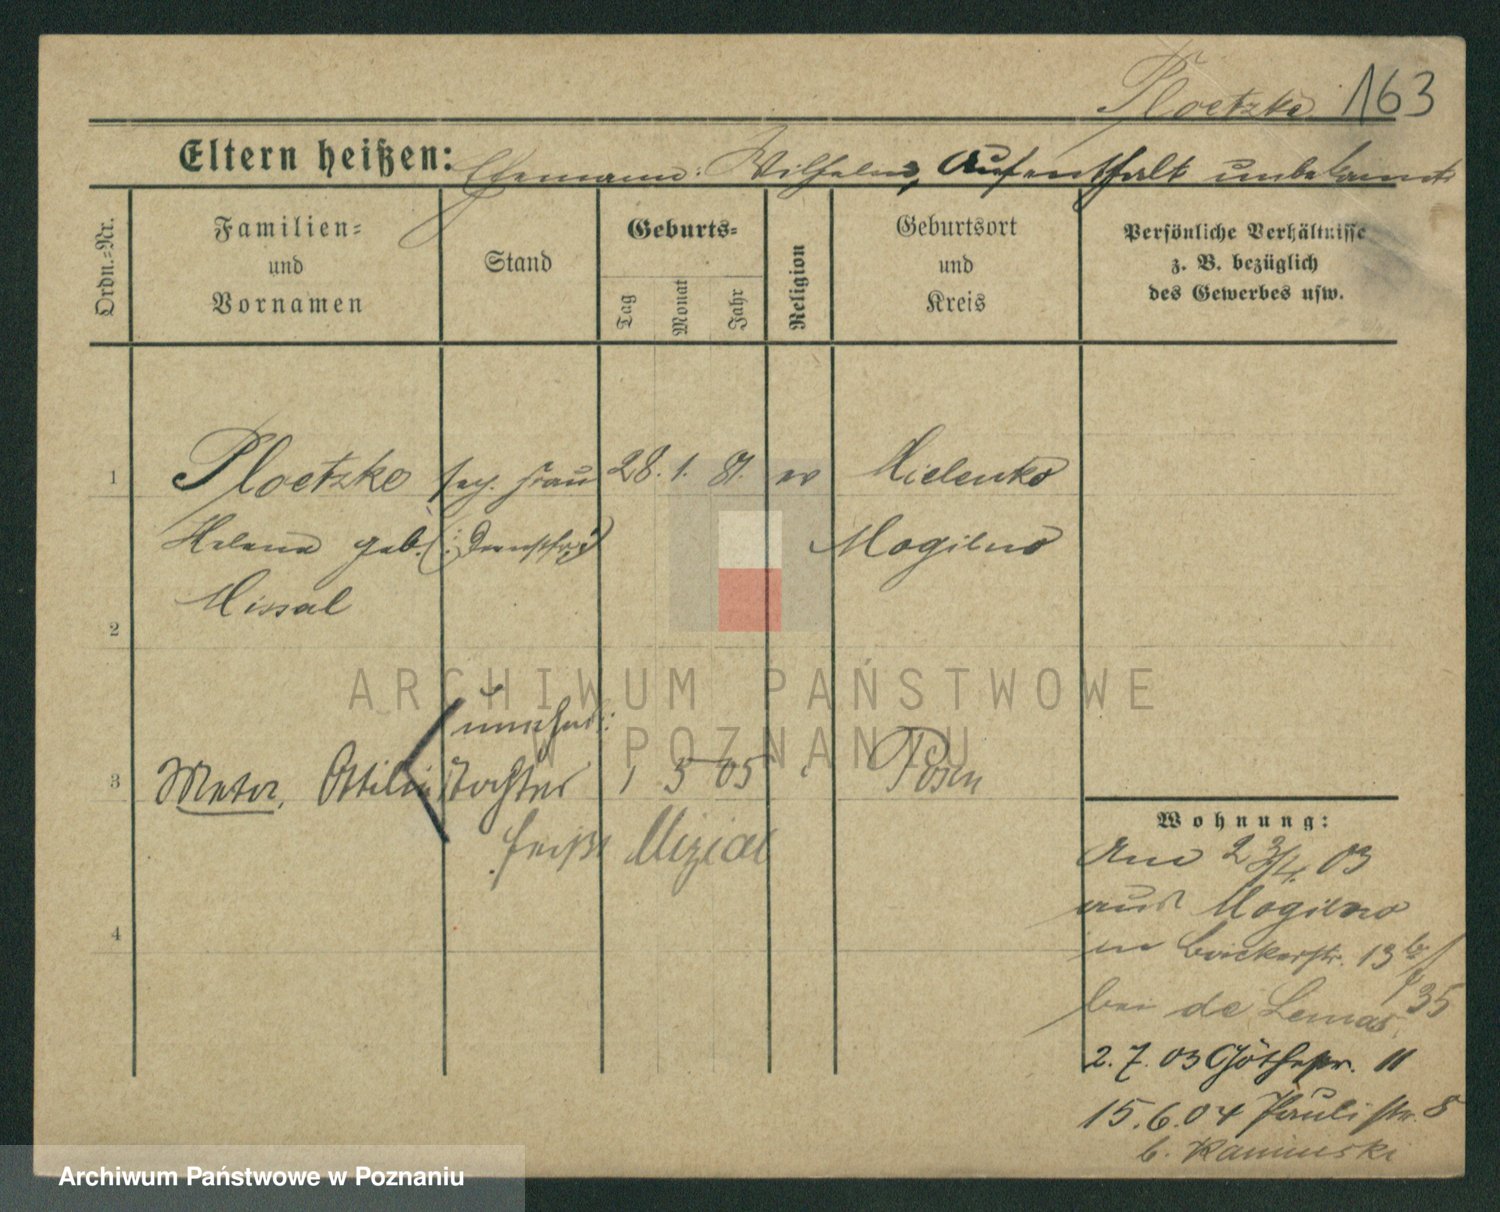 Ploetzke 163
Eltern heißen: Ehemann: Wilhelm, Aufenthalt unbekannt
Ordn.=Nr.
Familien=
und
Vornamen
Stand
Geburts=
Tag
Monat
Jahr
Religion
Geburtsort
und
Kreis
Persönliche Verhältnisse
z. B. bezüglich
des Gewerbes usw.
1 Ploetzke Frau 28. 1. 81. ev Mielenko
Helene geb. Mogilno
Missal
2
unehel:
3 Meta, Ottilie Tochter 1 5 05 Posen
heißt Miziol
4
Wohnung:
Am 23/4. 03
aus Mogilno
in Bäckerstr. 13
bei de Lemas 35
2. 7. 03 Göthestr. 11
15. 6. 04 Paulistr. 8
b. Kaminski
ARCHIWUM PAŃSTWOWE
W POZNANIU
Archiwum Państwowe w Poznaniu